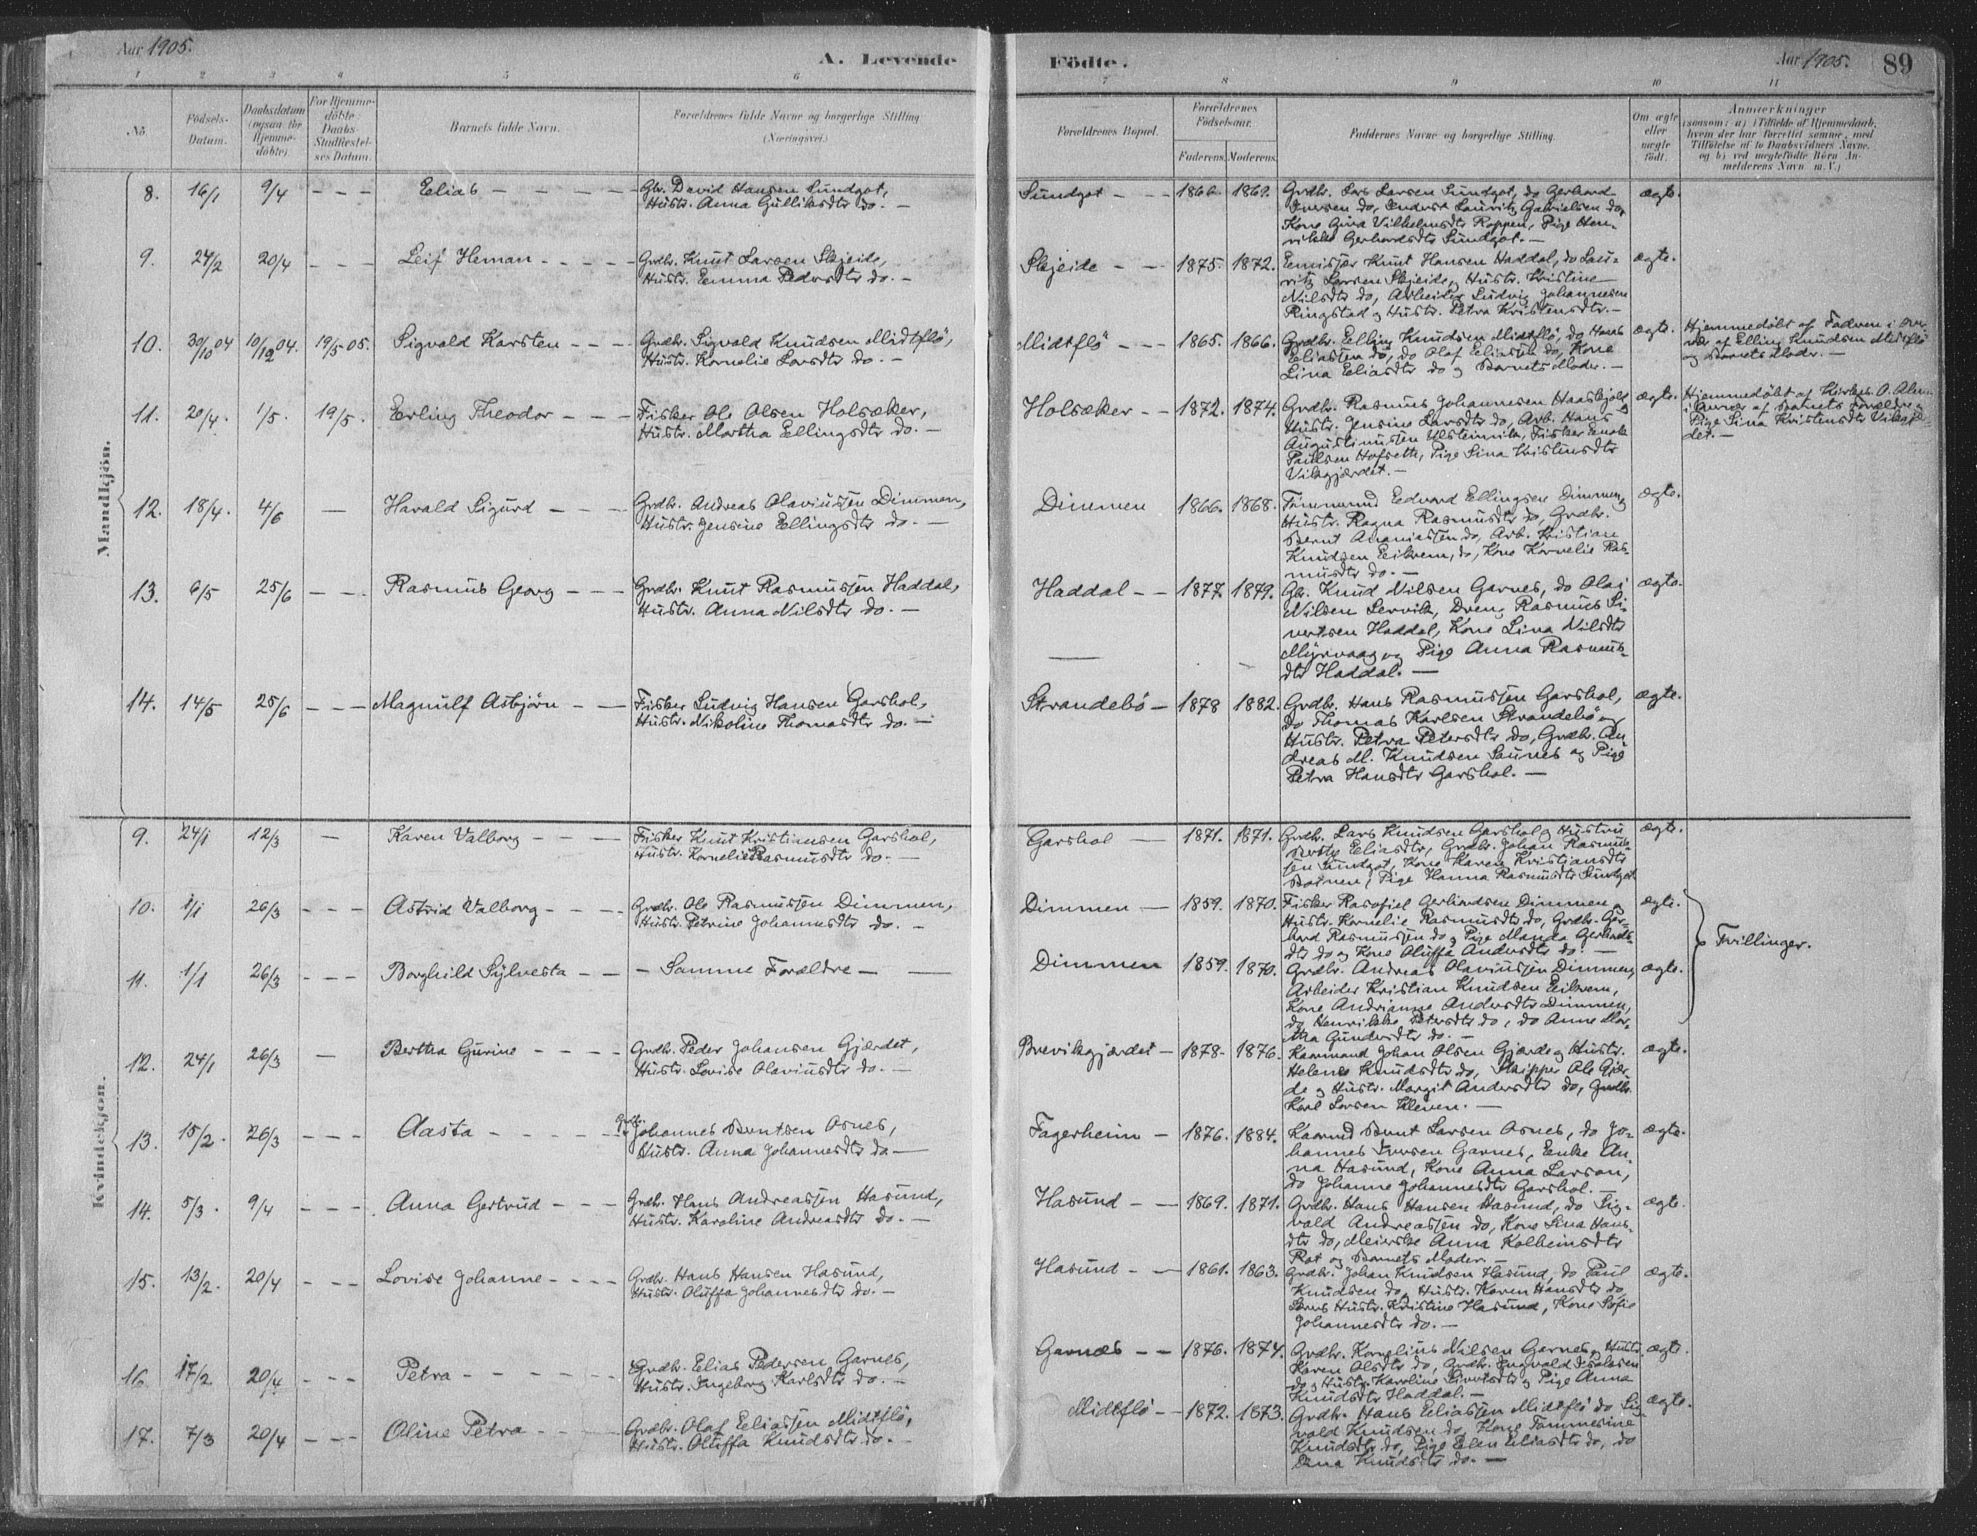 Aar 1905.
A. Levende
Födte.
Aar 1905.
89
1 2 3 4 5 6 7 8 9 10 11
No.
Födsels-
Datum.
Daabsdatum
(ogsaa for
Hjemme-
döbte)
For Hjemme-
döbte
Daabs-
Stadfæstel-
ses Datum.
Barnets fulde Navn.
Forældrenes fulde Navne og borgerlige Stilling
(Næringsvei.)
Forældrenes Bopæl.
Forældrenes
Födselsaar.
Faderens. Moderens.
Faddernes Navne og borgerlige Stilling.
Om ægte
eller
uægte
födt.
Anmærkninger
(saasom: a) i Tilfælde af Hjemmedaab,
hvem der har forrettet samme, med
Tilföielse af to Daabsvidners Navne,
og b) ved uægtefödte Börn An-
melderens Navn m. V.)
Mandkjön.
8. 16/1 9/4 - - - Elias - - - - -
Gbr. David Hansen Sundgot,
Hustr. Anna Gulliksdtr do. -
Sundgot - - 1866. 1869.
Grdbr. Lars Larsen Sundgot, do Gerhard
Iversen do, Lauritz Gabrielsen do,
Kone Gina Vilhelmsdtr Roppen, Pige Hen-
rikke Gerhardsdtr Sundgot. -
ægte.
9. 24/2 20/4 - - - Leif Heman - - - -
Grdbr. Knut Larsen Skjeide,
Hustr. Emma Pedersdtr do. -
Skjeide - - 1875. 1872.
Emissær Knut Hansen Haddal, do Lau-
ritz Larsen Skjeide, Hustr. Kristine
Nilsdtr do, Arbeider Ludvig Johannesen
Ringstad og Hustr. Petra Kristensdtr. -
ægte.
10. 30/10 04 10/12 04. 19/5 05. Sigvald Karsten - - -
Grdbr. Sigvald Knudsen Midtflö,
Hustr. Kornelie Larsdtr do. -
Midtflö - - - 1865. 1866.
Grdbr. Elling Knudsen Midtflö, do Hans
Eliassen do, do Olaf Eliassen do, Kone
Lina Eliasdtr do og Barnets Moder. -
ægte.
Hjemmedöbt af Faderen i Over-
vær af Elling Knudsen Midtflö
og Barnets Moder. -
11. 20/4. 1/5. 19/5. Erling Theodor - - -
Fisker Ole Olsen Holsæker,
Hustr. Martha Ellingsdtr do. -
Holsæker - - 1872. 1874.
Grdbr. Rasmus Johannesen Haaskjold,
Hustr. Jensine Larsdtr do, Arb. Hans
Augustinussen Ulsteinvik, Fisker Enok
Paulsen Hofseth, Pige Lina Kristensdtr
Vikegjærdet. -
ægte.
Hjemmedöbt af Kirkes. O. Alm-
i Overvær af Barnets Forældre og
Pige Lina Kristensdtr Vikegjær-
det. -
12. 18/4. 4/6 - Harald Sigurd - - -
Grdbr. Andreas Olaviussen Dimmen,
Hustr. Jensine Ellingsdtr do. -
Dimmen 1866. 1868.
Tömmermd Edvard Ellingsen Dimmen,
Hustr. Ragna Rasmusdtr do, Grdbr.
Bernt Ananiassen do, Arb. Kristian
Knudsen Eikrem, do, Kone Kornelie Ras-
musdtr do. -
ægte.
13. 6/5 25/6 - - - Rasmus Georg - - -
Grdbr. Knut Rasmussen Haddal,
Hustr. Anna Nilsdtr do. -
Haddal - - 1877. 1879.
Gb. Knud Nilsen Garnes, do Olai
Nilsen Lervik, Dreng Rasmus Si-
vertsen Haddal, Kone Lina Nilsdtr
Myrvaag og Pige Anna Rasmus-
dtr Haddal. -
ægte.
14. 14/5 25/6 - - - Magnulf Asbjörn - -
Fisker Ludvig Hansen Garshol,
Hustr. Nikoline Thomasdtr do. -
Strandebö - 1878 1882.
Grdbr. Hans Rasmussen Garshol,
do Thomas Karlsen Strandebö og
Hustr. Petra Petersdtr do, Grdbr. An-
dreas M. Knudsen Saunes og Pige
Petra Hansdtr Garshol. -
ægte.
Kvindekjön.
9. 24/1 12/3 - Karen Valborg - - -
Fisker Knut Kristiansen Garshol,
Hustr. Kornelie Rasmusdtr do. -
Garshol - 1871. 1871.
Grdbr. Lars Knudsen Garshol og Hustru
Eliasdtr, Grdbr. Johan Rasmus-
sen Sundgot, Kone Karen Kristiansdtr
Pige Hanna Rasmusdtr Sundgot
ægte.
10. 1/1 26/3 - - - Astrid Valborg - - -
Grdbr. Ole Rasmussen Dimmen,
Hustr. Petrine Johannesdtr do. -
Dimmen - 1859. 1870.
Fisker Rasofiel Gerhardsen Dimmen,
Hustr. Kornelie Rasmusdtr do, Grdbr. Ger-
hard Rasmussen do, Pige Manda Gerhards-
dtr do og Kone Oluffa Andersdtr do. -
ægte.
Tvillinger.
11. 1/1 26/3 - - - Borghild Sylvesta - -
- Samme Forældre - -
Dimmen 1859. 1870.
Grdbr. Andreas Olaviussen Dimmen,
Arbeider Kristian Knudsen Eikrem,
Kone Andrianne Andersdtr Dimmen,
do Henrikke Petersdtr do, do Anne Mar-
tha Gundersdtr do. -
ægte.
12. 24/1 26/3 - Bertha Gurine - - - -
Grdbr. Peder Johansen Gjærdet,
Hustr. Lovise Olaviusdtr do. -
Brevikgjærdet - 1878. 1876.
Kaarmand Johan Olsen Gjærde og Hustr.
Helene Knudsdtr do, Skipper Ole Gjær-
de og Hustr. Margit Andersdtr do, Grdbr.
Karl Larsen Kleven. -
ægte.
13. 15/2. 26/3 - - - Aasta - - - - -
Grdbr. Johannes Berntsen Osnes,
Hustr. Anna Johannesdtr do -
Fagerheim - 1876. 1884.
Kaarmd Bernt Larsen Osnes, do Jo-
hannes Iversen Garnes, Enke An-
na Hasund, Kone Anna Larsen,
do Johanne Johannesdtr Garshol. -
ægte.
14. 5/3. 9/4 - - - Anna Gertrud - - -
Grdbr. Hans Andreassen Hasund,
Hustr. Karoline Andreasdtr do. -
Hasund - - 1869. 1871.
Grdbr. Hans Hansen Hasund, do Sig-
vald Andreassen do, Kone Lina Hans-
dtr do, Meierske Anna Kolbeinsdtr
Röt og Barnets Moder. -
ægte.
15. 13/2. 20/4 - - - Lovise Johanne - - - -
Grdbr. Hans Hansen Hasund,
Hustr. Oluffa Johannesdtr do. -
Hasund - - 1861. 1863.
Grdbr. Johan Knudsen Hasund, do Paul
Knudsen do, Hustr. Karen Hansdtr do,
Hustr. Kristine Hasund, Kone Sofie
Johannesdtr do. -
ægte.
16. 17/2 20/4 - - - Petra - - - - -
Grdbr. Elias Pedersen Garnes,
Hustr. Ingeborg Karlsdtr do. -
Garnæs - - 1876. 1874.
Grdbr. Kornelius Nilsen Garnes, Hustr.
Karen Olsdtr do, Grdbr. Ingvald Isaksen
do, Hustr. Karoline Sivertsdtr og Pige Anna
Knudsdtr Haddal. -
ægte.
17. 7/3 20/4 - - - Oline Petra - - -
Grdbr. Olaf Eliassen Midtflö,
Hustr. Oluffa Knudsdtr do. -
Midtflö - 1872. 1873.
Grdbr. Hans Eliassen Midtflö do Sig-
vald Knudsen do, Kone Tömmesine
Knudsdtr do, Pige Elen Eliasdtr do, do
Knudsdtr do. -
ægte.